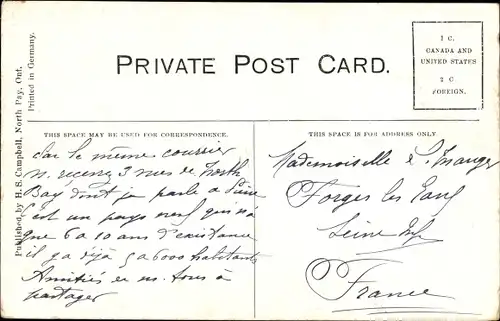 PRIVATE POST CARD.
1 C.
CANADA AND
UNITED STATES
2 C
FOREIGN.
Published by H. S. Campbell, North Bay, Ont.
Printed in Germany.
THIS SPACE MAY BE USED FOR CORRESPONDENCE.
THIS SPACE IS FOR ADDRESS ONLY
par le même courrier
n. recevez 3 vues de North
Bay dont je parle a
C'est un pays neuf qui n'a
que 6 a 10 ans d'existence
il y a déjà 5 a 6000 habitants
Amitiés en ns. tous à
partager
Mademoiselle
Forges les
Seine Inf
France